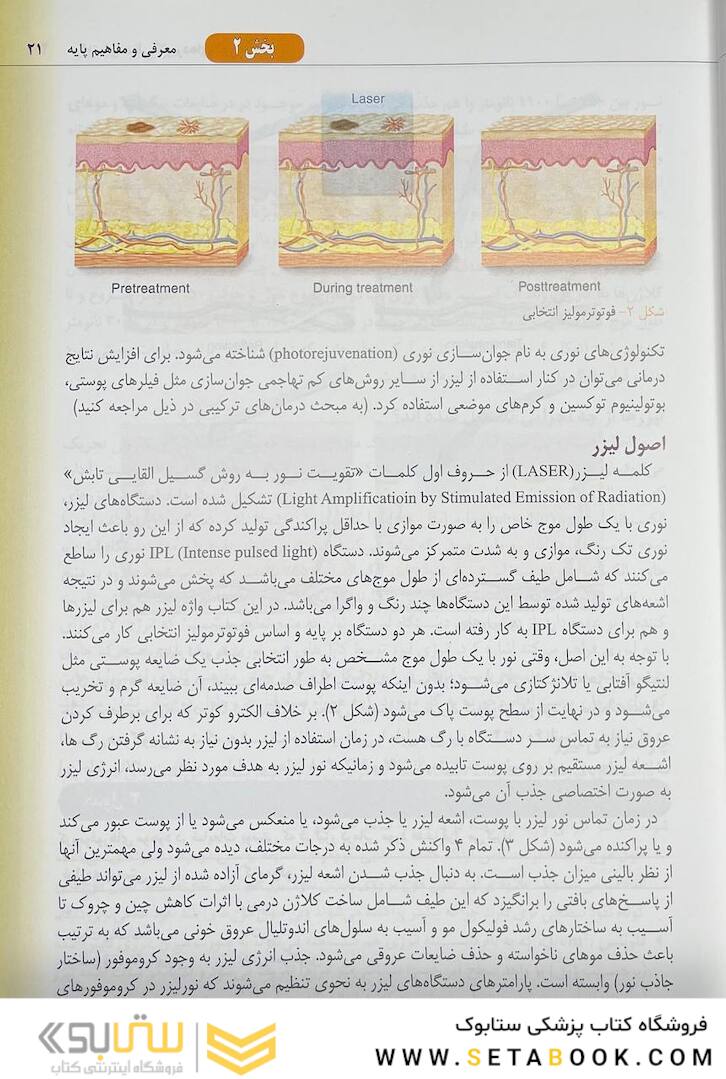 بخش ۲ معرفی و مفاهیم پایه ۲۱
Laser
Pretreatment During treatment Posttreatment
شکل ۲- فوتوترمولیز انتخابی
تکنولوژی‌های نوری به نام جوان‌سازی نوری (photorejuvenation) شناخته می‌شود. برای افزایش نتایج
درمانی می‌توان در کنار استفاده از لیزر از سایر روش‌های کم تهاجمی جوان‌سازی مثل فیلرهای پوستی،
بوتولینیوم توکسین و کرم‌های موضعی استفاده کرد. (به مبحث درمان‌های ترکیبی در ذیل مراجعه کنید)
اصول لیزر
کلمه لیزر(LASER) از حروف اول کلمات «تقویت نور به روش گسیل القایی تابش»
(Light Amplificatioin by Stimulated Emission of Radiation) تشکیل شده است. دستگاه‌های لیزر،
نوری با یک طول موج خاص را به صورت موازی با حداقل پراکندگی تولید کرده که از این رو باعث ایجاد
نوری تک رنگ، موازی و به شدت متمرکز می‌شوند. دستگاه IPL (Intense pulsed light) نوری را ساطع
می‌کنند که شامل طیف گسترده‌ای از طول موج‌های مختلف می‌باشد که پخش می‌شوند و در نتیجه
اشعه‌های تولید شده توسط این دستگاه‌ها چند رنگ و واگرا می‌باشد. در این کتاب واژه لیزر هم برای لیزرها
و هم برای دستگاه IPL به کار رفته است. هر دو دستگاه بر پایه و اساس فوتوترمولیز انتخابی کار می‌کنند.
با توجه به این اصل، وقتی نور با یک طول موج مشخص به طور انتخابی جذب یک ضایعه پوستی مثل
لنتیگو آفتابی یا تلانژکتازی می‌شود؛ بدون اینکه پوست اطراف صدمه‌ای ببیند، آن ضایعه گرم و تخریب
می‌شود و در نهایت از سطح پوست پاک می‌شود (شکل ۲). بر خلاف الکترو کوتر که برای برطرف کردن
عروق نیاز به تماس سر دستگاه با رگ هست، در زمان استفاده از لیزر بدون نیاز به نشانه گرفتن رگ ها،
اشعه لیزر مستقیم بر روی پوست تابیده می‌شود و زمانیکه نور لیزر به هدف مورد نظر می‌رسد، انرژی لیزر
به صورت اختصاصی جذب آن می‌شود.
در زمان تماس نور لیزر با پوست، اشعه لیزر یا جذب می‌شود، یا منعکس می‌شود یا از پوست عبور می‌کند
و یا پراکنده می‌شود (شکل ۳). تمام ۴ واکنش ذکر شده به درجات مختلف، دیده می‌شود ولی مهمترین آنها
از نظر بالینی میزان جذب است. به دنبال جذب شدن اشعه لیزر، گرمای آزاده شده از لیزر می‌تواند طیفی
از پاسخ‌های بافتی را برانگیزد که این طیف شامل ساخت کلاژن درمی با اثرات کاهش چین و چروک تا
آسیب به ساختارهای رشد فولیکول مو و آسیب به سلول‌های اندوتلیال عروق خونی می‌باشد که به ترتیب
باعث حذف موهای ناخواسته و حذف ضایعات عروقی می‌شود. جذب انرژی لیزر به وجود کروموفور (ساختار
جاذب نور) وابسته است. پارامترهای دستگاه‌های لیزر به نحوی تنظیم می‌شوند که نورلیزر در کروموفورهای
فروشگاه کتاب پزشکی ستابوک
WWW.SETABOOK.COM
ستابوک
فروشگاه اینترنتی کتاب